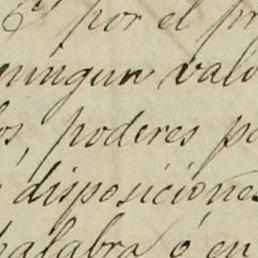 por el pr
ningun valo
os, poderes po
disposiciones
palabra ó en